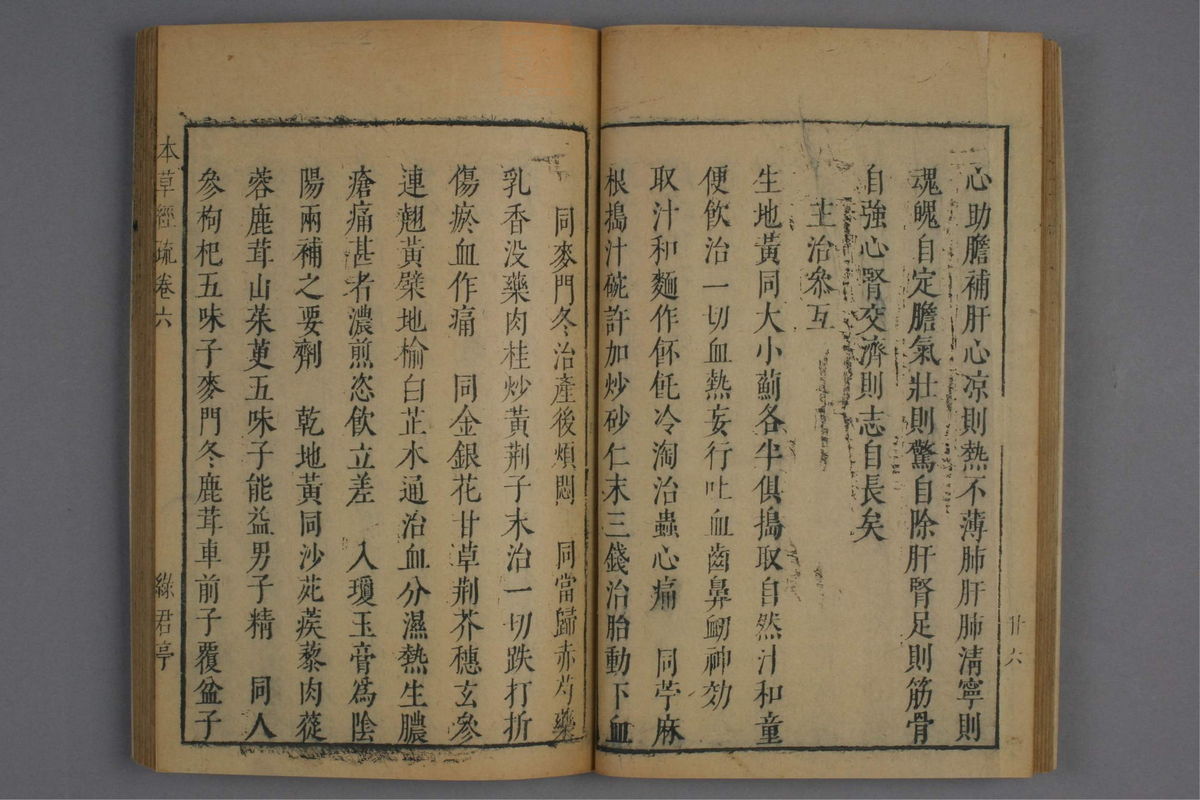 心助膽補肝心凉則熱不薄肺肝肺淸寧則
魂魄自定膽氣壯則驚自除肝腎足則筋骨
自強心腎交濟則志自長矣
主治叅互
生地黃同大小薊各半俱搗取自然汁和童
便飮治一切血熱妄行吐血齒鼻衂神効
取汁和麵作冷淘治蟲心痛　同苧麻
根搗汁碗許加炒砂仁末三錢治胎動下血
同麥門冬治產後煩悶　同當歸赤芍藥
乳香没藥肉桂炒黃荆子末治一切跌打折
傷瘀血作痛　同金銀花甘草荆芥穗玄參
連翹黃檗地榆白芷木通治血分濕熱生膿
瘡痛甚者濃煎恣飮立差　入瓊玉膏爲陰
陽兩補之要劑　乾地黃同沙苑蒺藜肉蓯
蓉鹿茸山茱萸五味子能益男子精　同人
參枸杞五味子麥門冬鹿茸車前子覆盆子
本草經疏卷六
綠君亭
廿六